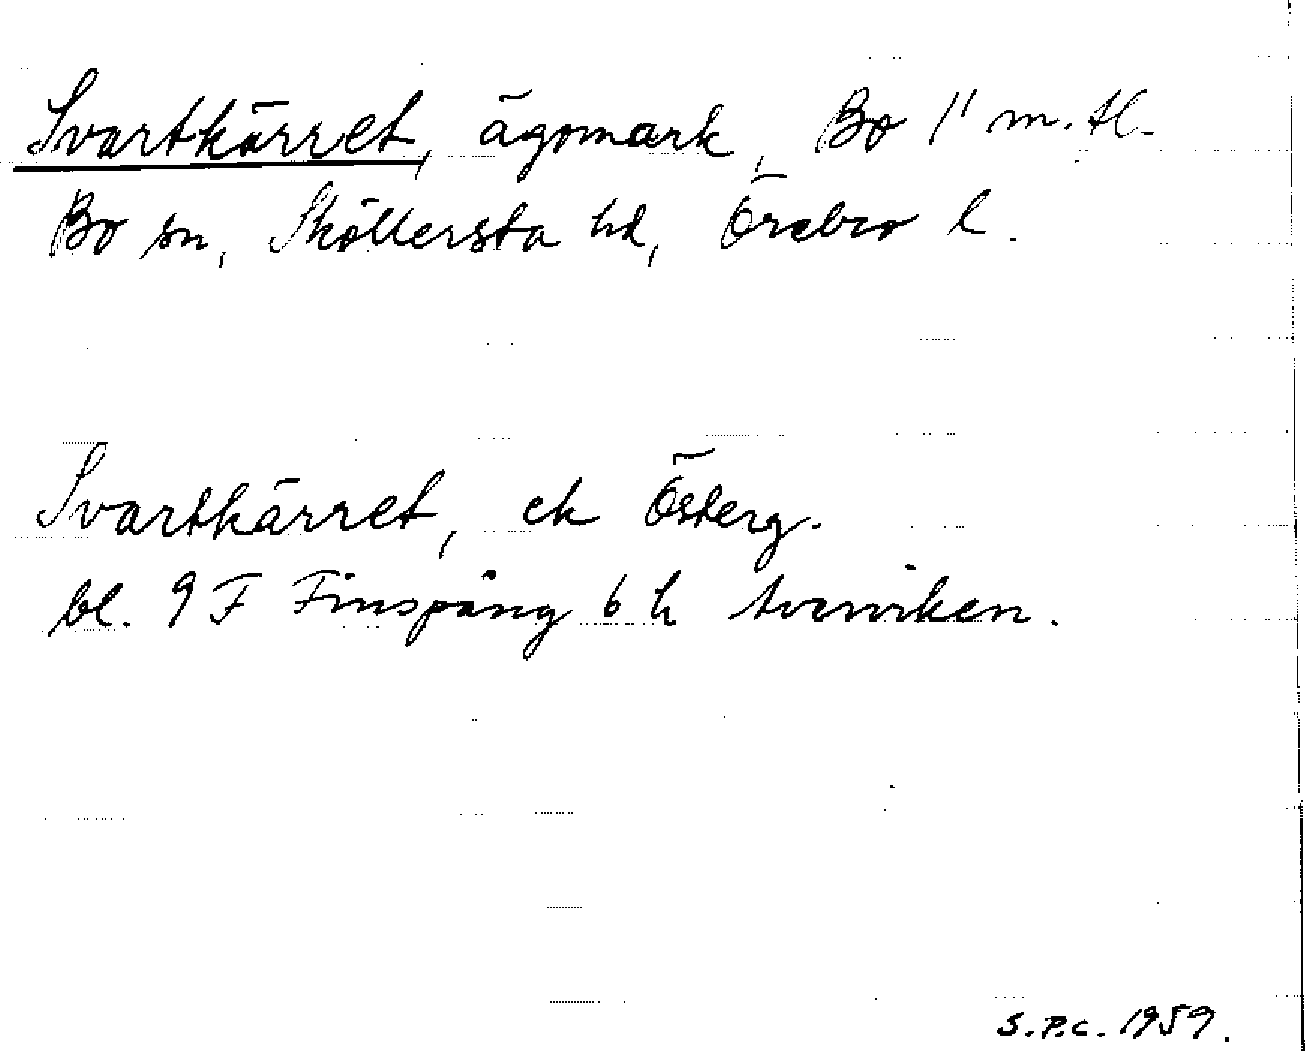 Svartkärret, ägomark, Bo 1¹ m.fl.
Bo sn, Sköllersta hd, Örebro l.
Svartkärret, ek Österg.
bl. 9 F Finspång 6 h
S.P.C. 1959.